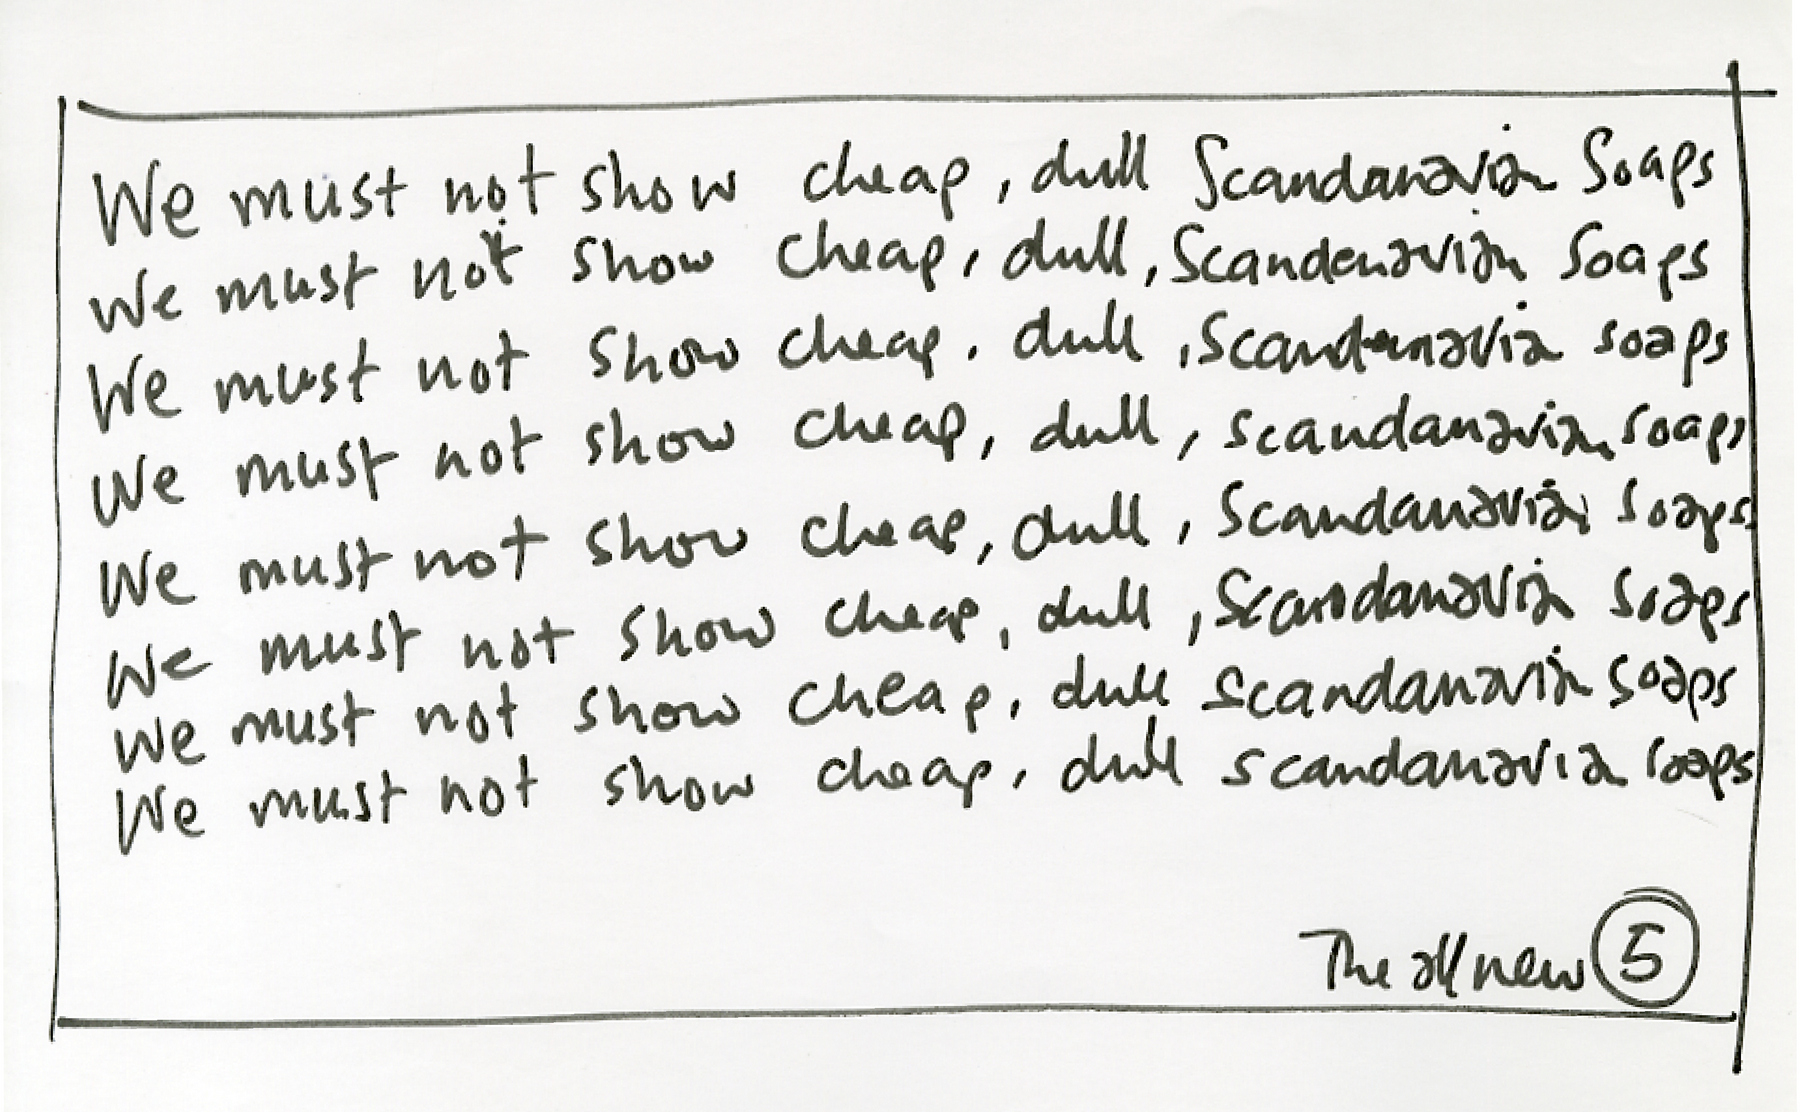 We must not show cheap, dull Scandanavian Soaps
We must not show cheap, dull, Scandenavian Soaps
We must not show cheap, dull, Scandanavia soaps
We must not show cheap, dull, scandanavian soaps
We must not show cheap, dull, Scandanavian soaps
We must not show cheap, dull, Scandanavia soaps
We must not show cheap, dull scandanavian soaps
We must not show cheap, dull scandanavia soaps
The all new 5